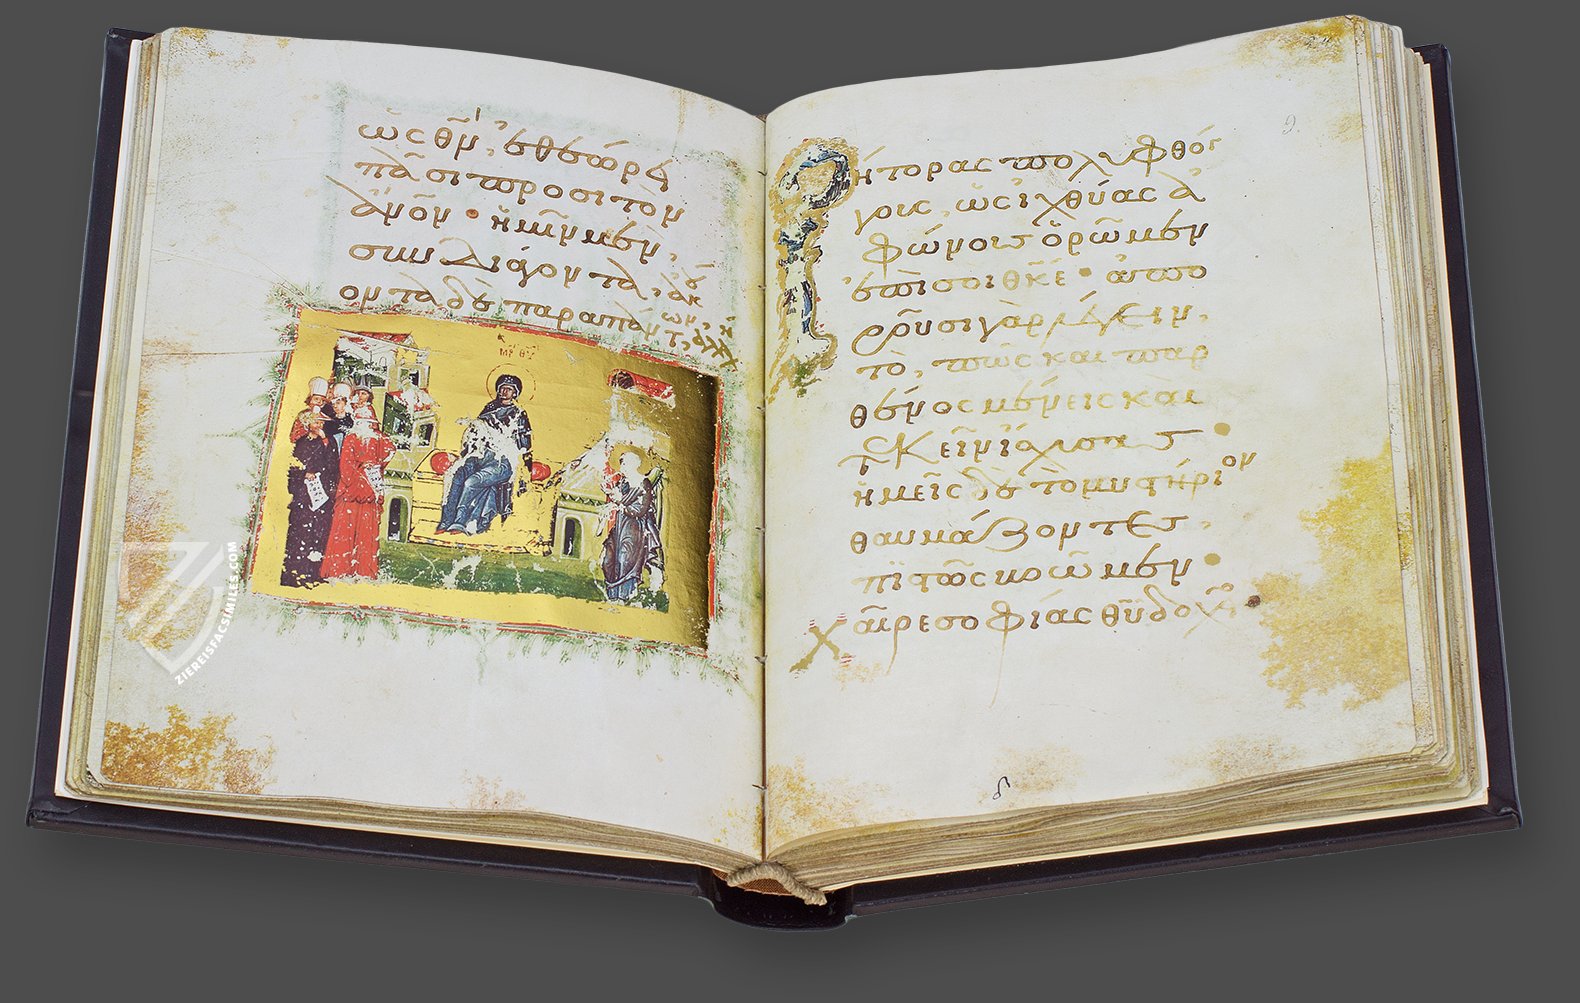 ὡς θν̄, ἐθεώρει
πᾶσι προσιτὸν
ἄνον· ἡμῖν μὲν,
συνδιάγοντα, ἀκού
οντα δὲ παρὰ πάντων, ἀλλ
ΜΡ ΘΥ
9.
Ρήτορας πολυφθόγ
γους, ὡς ἰχθύας ἀ
φώνους ὁρῶμεν
ἐπὶ σοὶ θκε· ἀπο
ροῦσι γὰρ λέγειν,
τὸ, πῶς και παρ
θένος μένεις καὶ
τεκεῖν ἴσχυσας·
ἡμεῖς δὲ τὸ μυστήριον
θαυμάζοντες,
πιστῶς βοῶμεν·
χαῖρε σοφίας θῦ δοχεῖ
ZIEREISFACSIMILES.COM